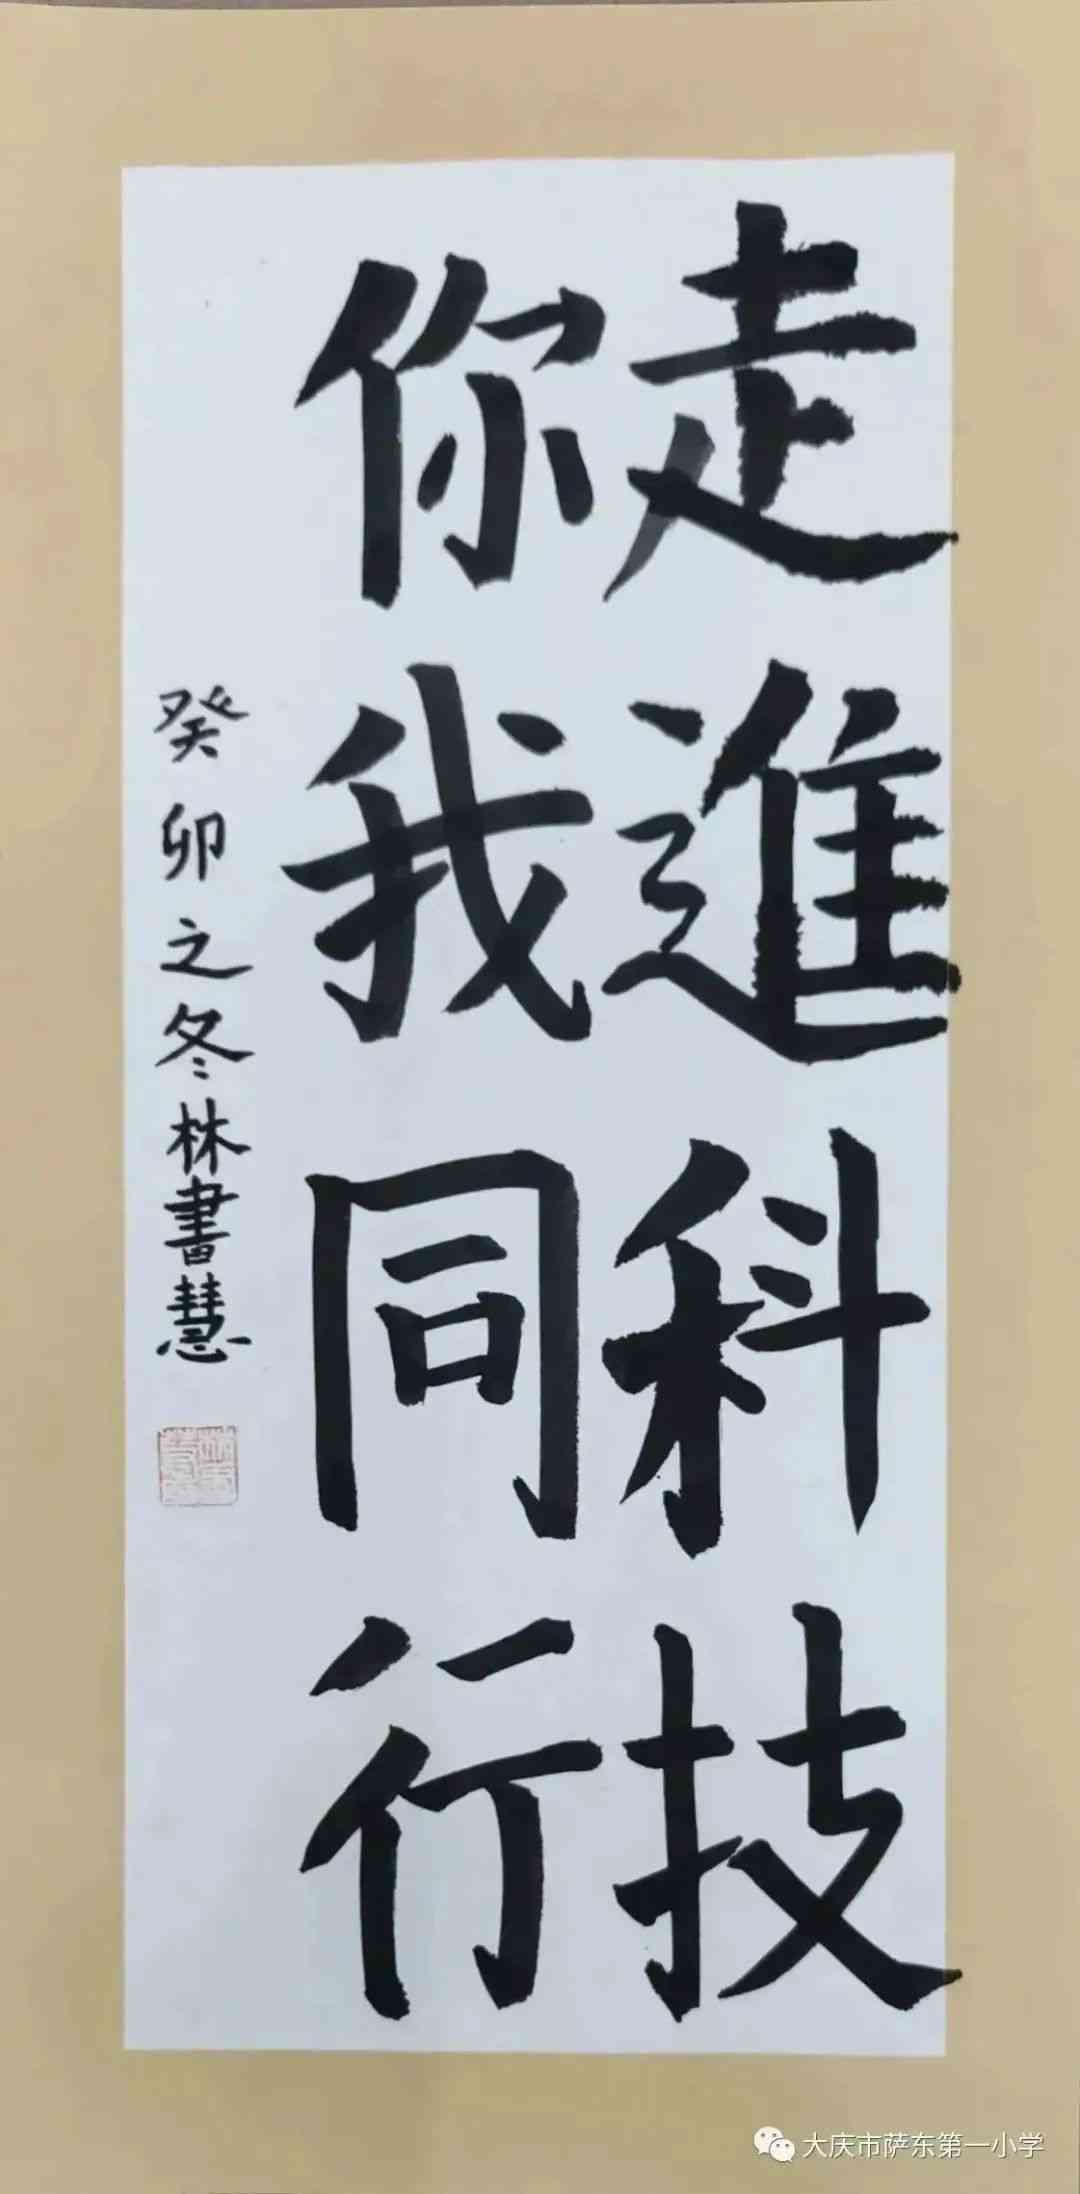 走進科技
你我同行
癸卯之冬林書慧
大庆市萨东第一小学